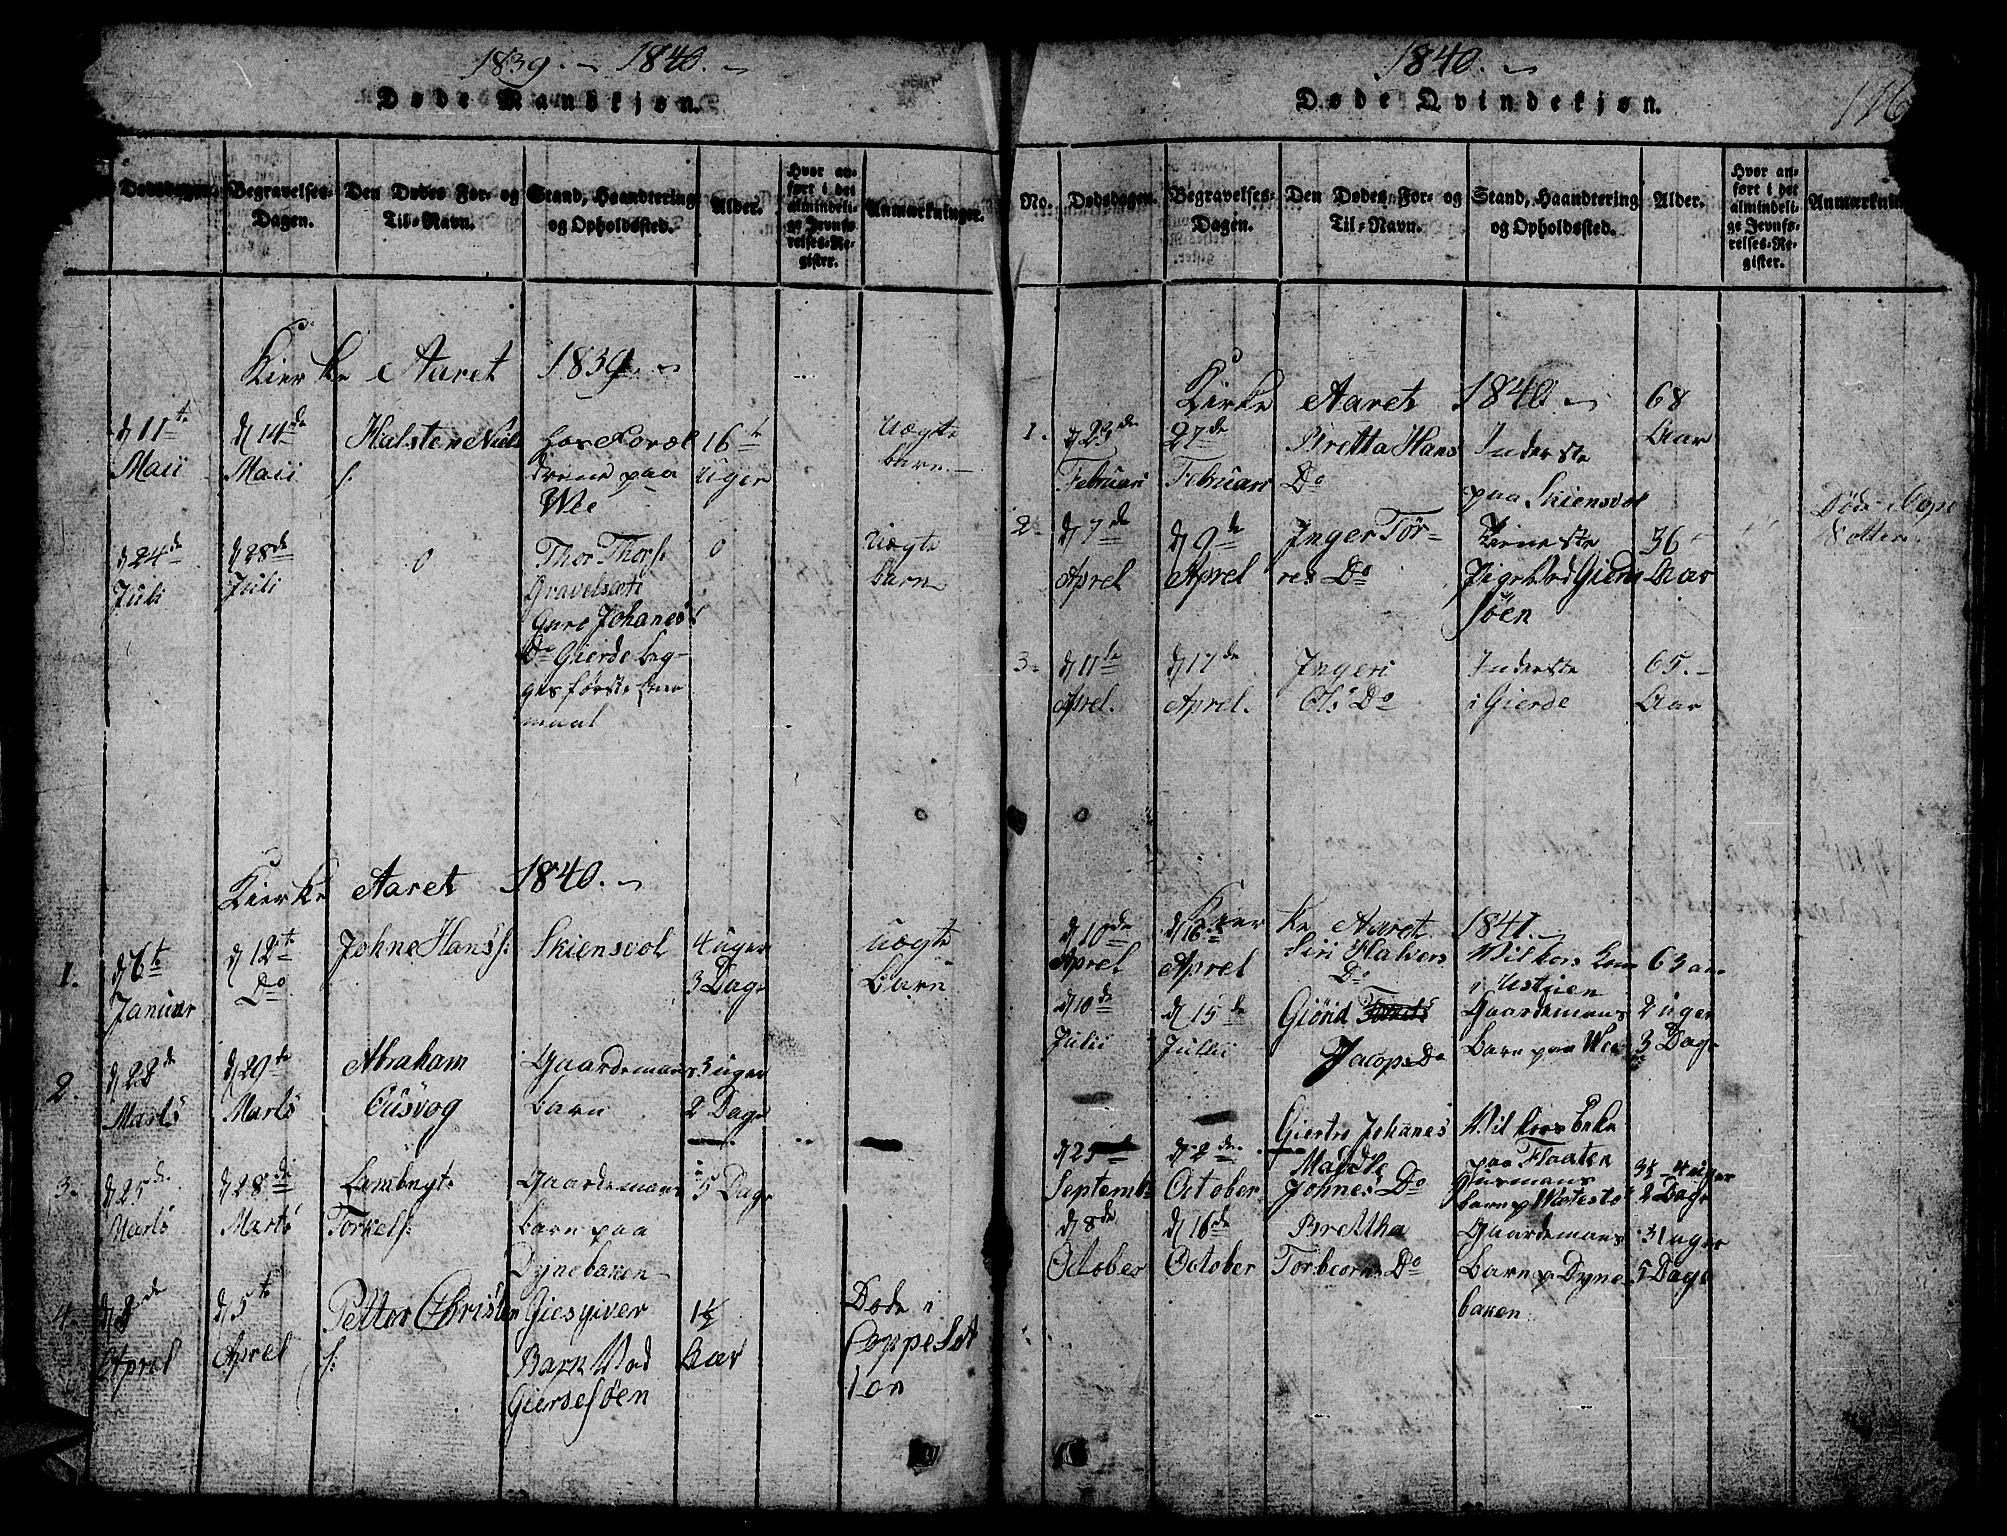 1839. - 1840. -
Døde Mandkjøn.
Dødsdagen.
Begravelses-
Dagen.
Den Dødes For- og
Til-Navn.
Stand, Haandtering
og Opholdssted.
Alder.
Hvor an-
ført i det
almindeli-
ge Jevnfø-
relses-Re-
gister.
Anmærkninger.
Kierke Aaret 1839. -
d 11te
Maii
d 14de
Maii
Halsten Niels
s:
hos Foræl
drene paa
Wee
16te
Uger
Uægte
barn. -
d 24de
Juli
d 28de
Juli
0
Thor Thors:
Gravelsæt
Guro Johanes
Do Gierde beg-
ges første Leier
maal
0
Uægte
barn
Kierke Aaret 1840. -
1.
d 6te
Januar
d 12te
Do
Johne Hans s:
Skiensvol
4 uger
3 Dage
Uægte
barn
2.
d 22de
Marts
d 29te
Marts
Abraham
Gaardemans
barn
3 uger
2 Dage
3.
d 25de
Marts
d 28de
Marts
Torkels:
Gaardemans
barn paa
Dynebaken
5 Dage
4.
d 2de
Aprel
d 5te
Aprel
Petter Christen
s:
Giesgiver
Bark Ved
Gierdesøen
1½
Aar
Døde i
Coppe
1840. -
Døde Qvindekjøn.
116
No.
Dødsdagen.
Begravelses-
Dagen.
Den Dødes For- og
Til-Navn.
Stand, Haandtering
og Opholdssted.
Alder.
Hvor an-
ført i det
almindeli-
ge Jevnfø-
relses-Re-
gister.
Anmærknin
Kirke Aaret 1840. -
1.
d 23de
Februari
27de
Februari
Bretta Hans
Do
Inderste
paa Skiensvol
68
Aar
2.
d 7de
Aprel
d 9de
Aprel
Inger Tør-
res Do
Tieneste
Pige Ved Gierde
søen
36
Aar
Døde
3.
d 11te
Aprel
d 17de
Aprel.
Ingeri
Ols Do
Inderste
i Gierde
65. -
Aar
Kierke Aaret 1841. -
d 10de
Aprel
d 16de
Aprel
Siri Halvors
Do
i Ustuen
63 aar
d 10de
Julii
d 15de
Julii
Giörid
Jacops Do
Gaardemans
barn paa Wee
2 uger
3 Dage
Giertru Johanes
paa Flaaten
d 25
Septemb
d 2de
October
Malde
Johnes Do
Huusmans
4 uger
2 Dage
d 8de
October
d 16de
October
Brettha
Torbiorns Do
Gaardemans
barn p Dyne
baken
31 uger
5 Dage